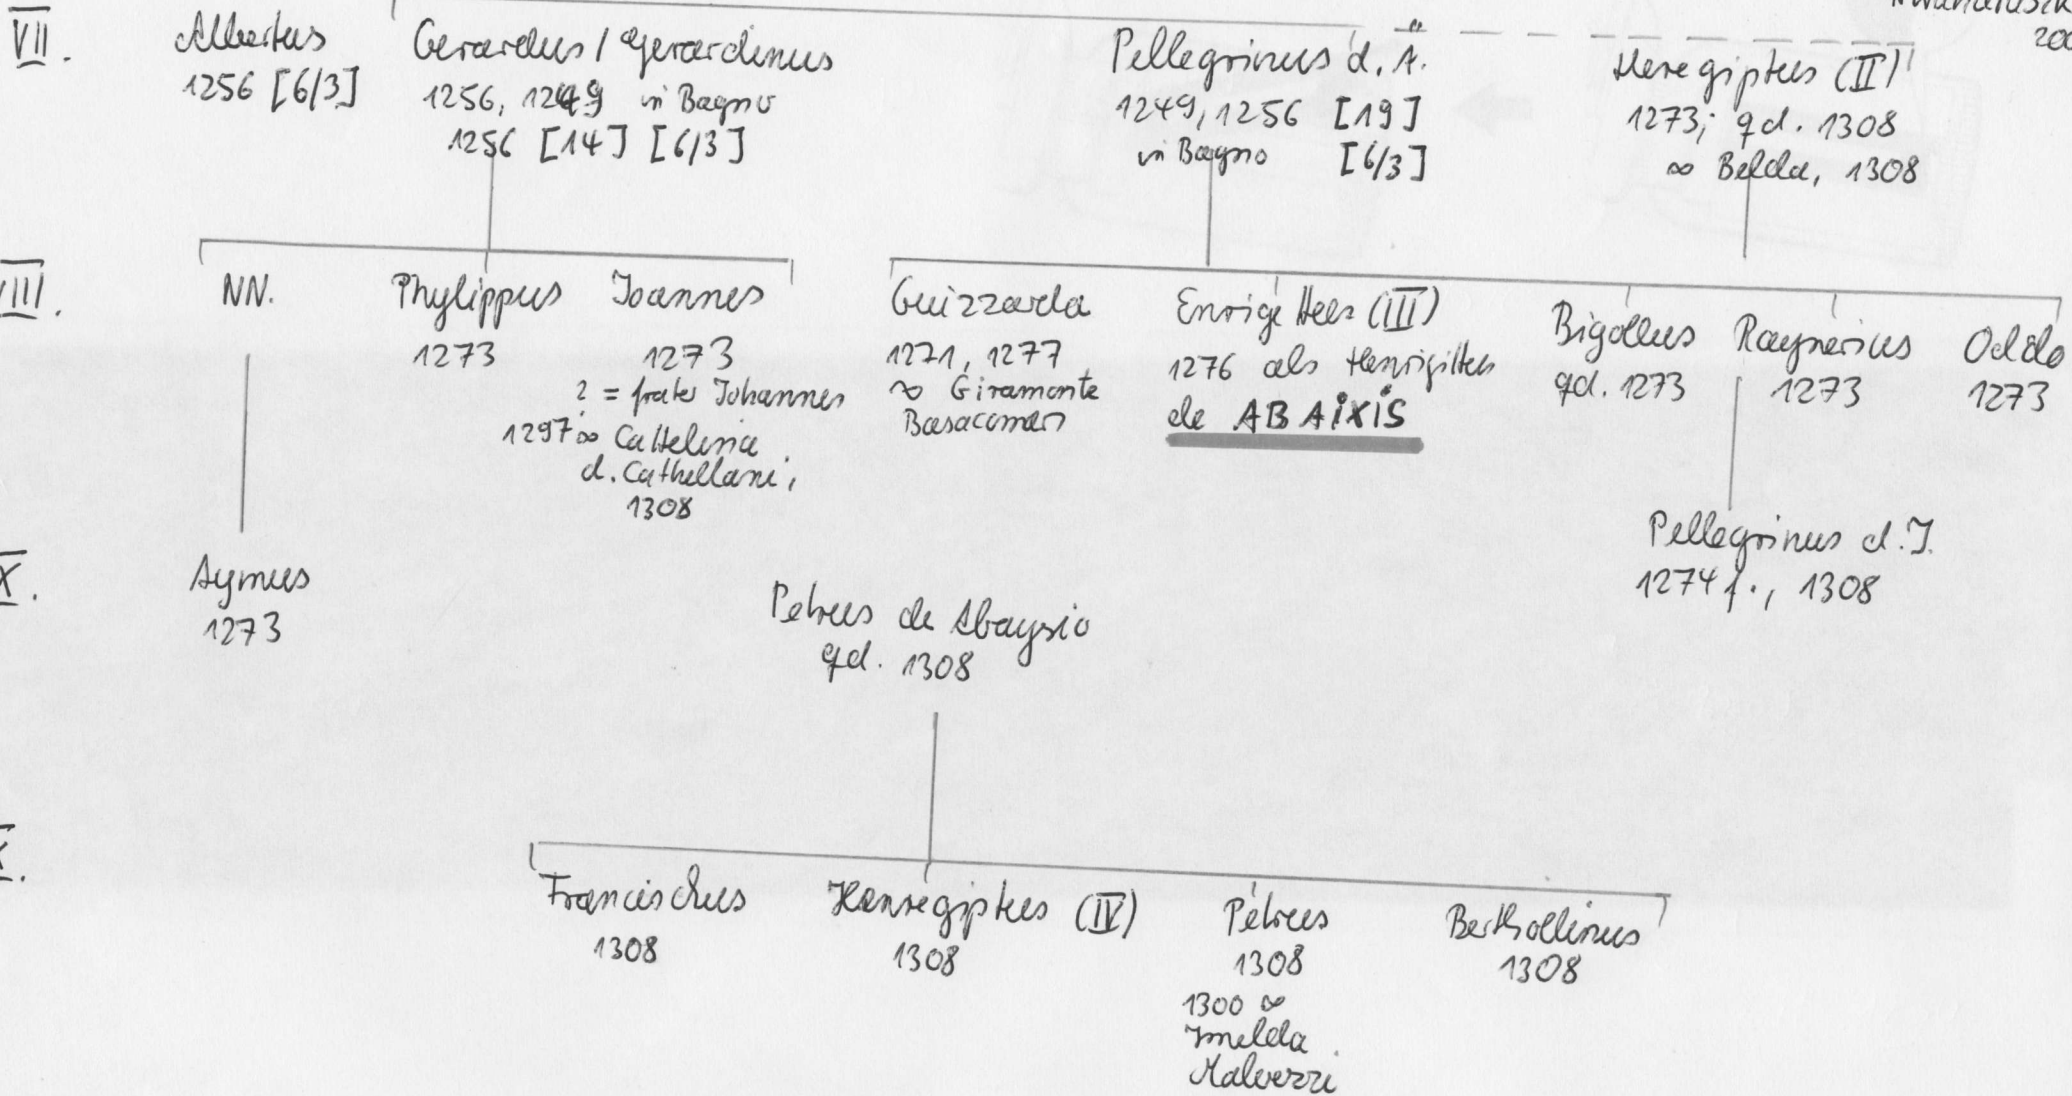 VII.
Albertus
1256 [6/3]
Gerardus / Gerardinus
1256, 1249 in Bagno
1256 [14] [6/3]
Pellegrinus d. Ä.
1249, 1256 [19]
in Bagno [6/3]
Heregiptus (II)
1273; qd. 1308
∞ Belda, 1308
200
VIII.
NN.
Phylippus
1273
Joannes
1273
? = frater Johannes
1297 ∞ Cattelina
d. Cathellani,
1308
Guizzarda
1271, 1277
∞ Giramonte
Basacomari
Enrigettus (III)
1276 als Henrigittus
de ABAIXIS
Bigollus
qd. 1273
Raynerius
1273
Oddo
1273
X.
Aymus
1273
Petrus de Abaysio
qd. 1308
Pellegrinus d. J.
1274 f., 1308
X.
Francischus
1308
Henregiptus (IV)
1308
Petrus
1308
1300 ∞
Imelda
Malvezzi
Berthollinus
1308